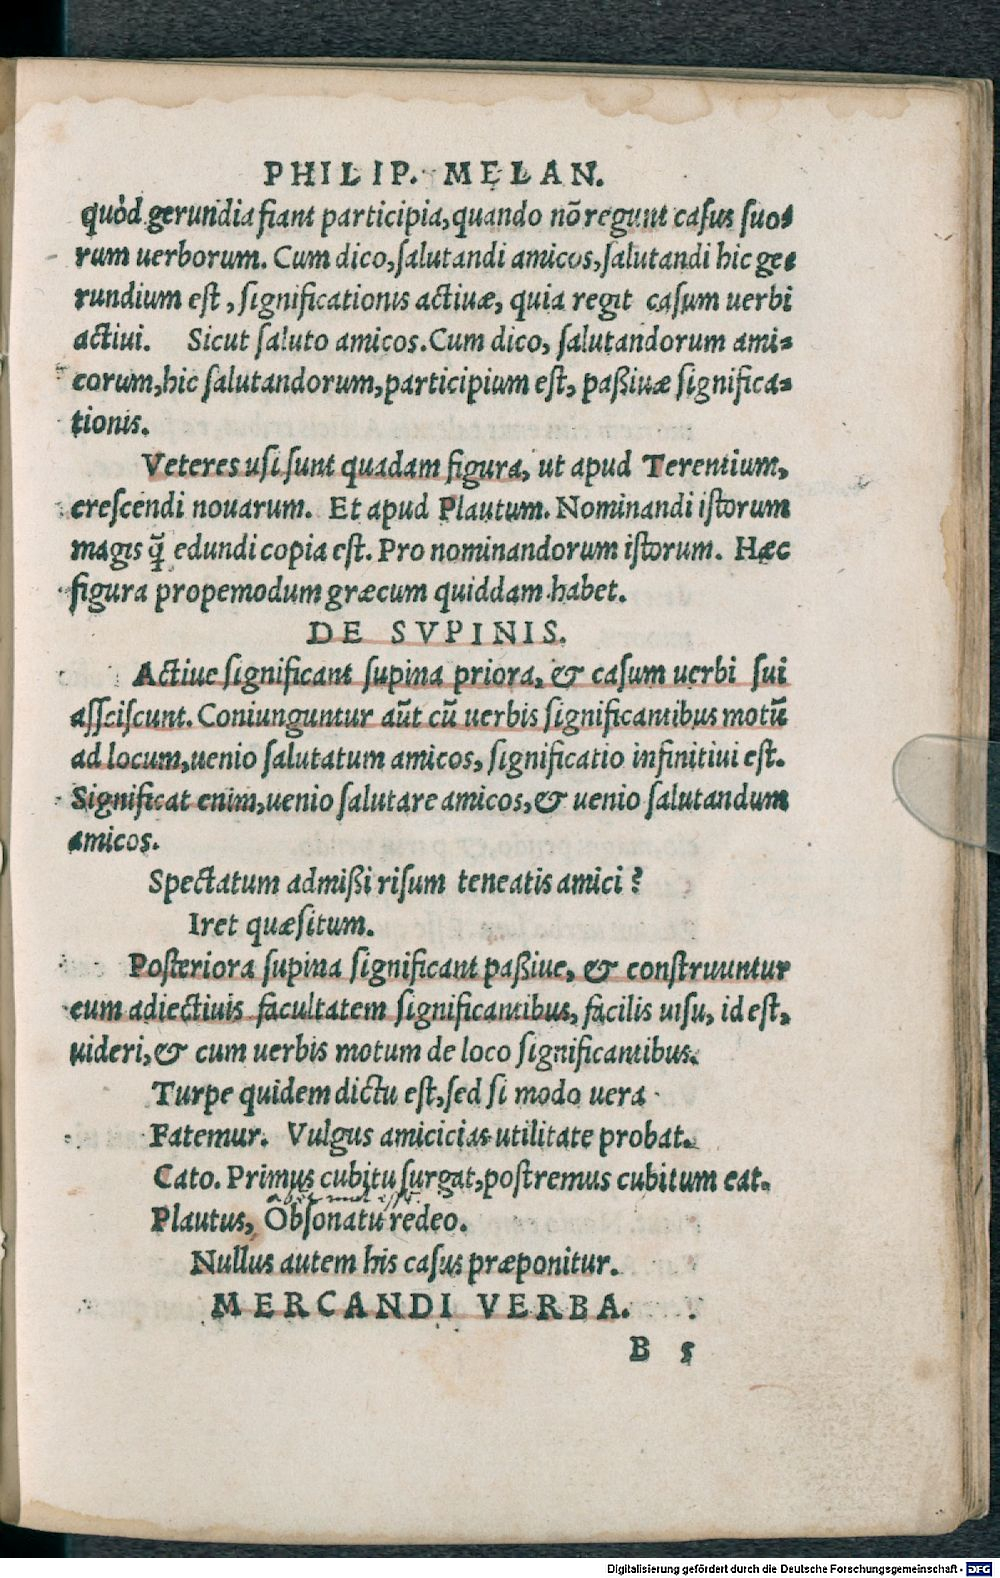 PHILIP. MELAN.
quòd gerundia fiant participia, quando nō regunt casus suo⸗
rum uerborum. Cum dico, salutandi amicos, salutandi hic ge⸗
rundium est, significationis actiuæ, quia regit casum uerbi
actiui. Sicut saluto amicos. Cum dico, salutandorum ami⸗
corum, hic salutandorum, participium est, paßiuæ significa⸗
tionis.
Veteres usi sunt quadam figura, ut apud Terentium,
crescendi nouarum. Et apud Plautum. Nominandi istorum
magis q̃ edundi copia est. Pro nominandorum istorum. Hæc
figura propemodum græcum quiddam habet.
DE SVPINIS.
Actiue significant supina priora, & casum uerbi sui
asſciscunt. Coniunguntur aūt cū uerbis significantibus motū
ad locum, uenio salutatum amicos, significatio infinitiui est.
Significat enim, uenio salutare amicos, & uenio salutandum
amicos.
Spectatum admißi risum teneatis amici?
Iret quæsitum.
Posteriora supina significant paßiue, & construuntur
cum adiectiuis facultatem significantibus, facilis uisu, id est,
uideri, & cum uerbis motum de loco significantibus.
Turpe quidem dictu est, sed si modo uera
Fatemur. Vulgus amicicias utilitate probat.
Cato. Primus cubitu surgat, postremus cubitum eat.
Plautus, Obsonatu redeo.
Nullus autem his casus præponitur.
MERCANDI VERBA.
B 5
Digitalisierung gefördert durch die Deutsche Forschungsgemeinschaft - DFG